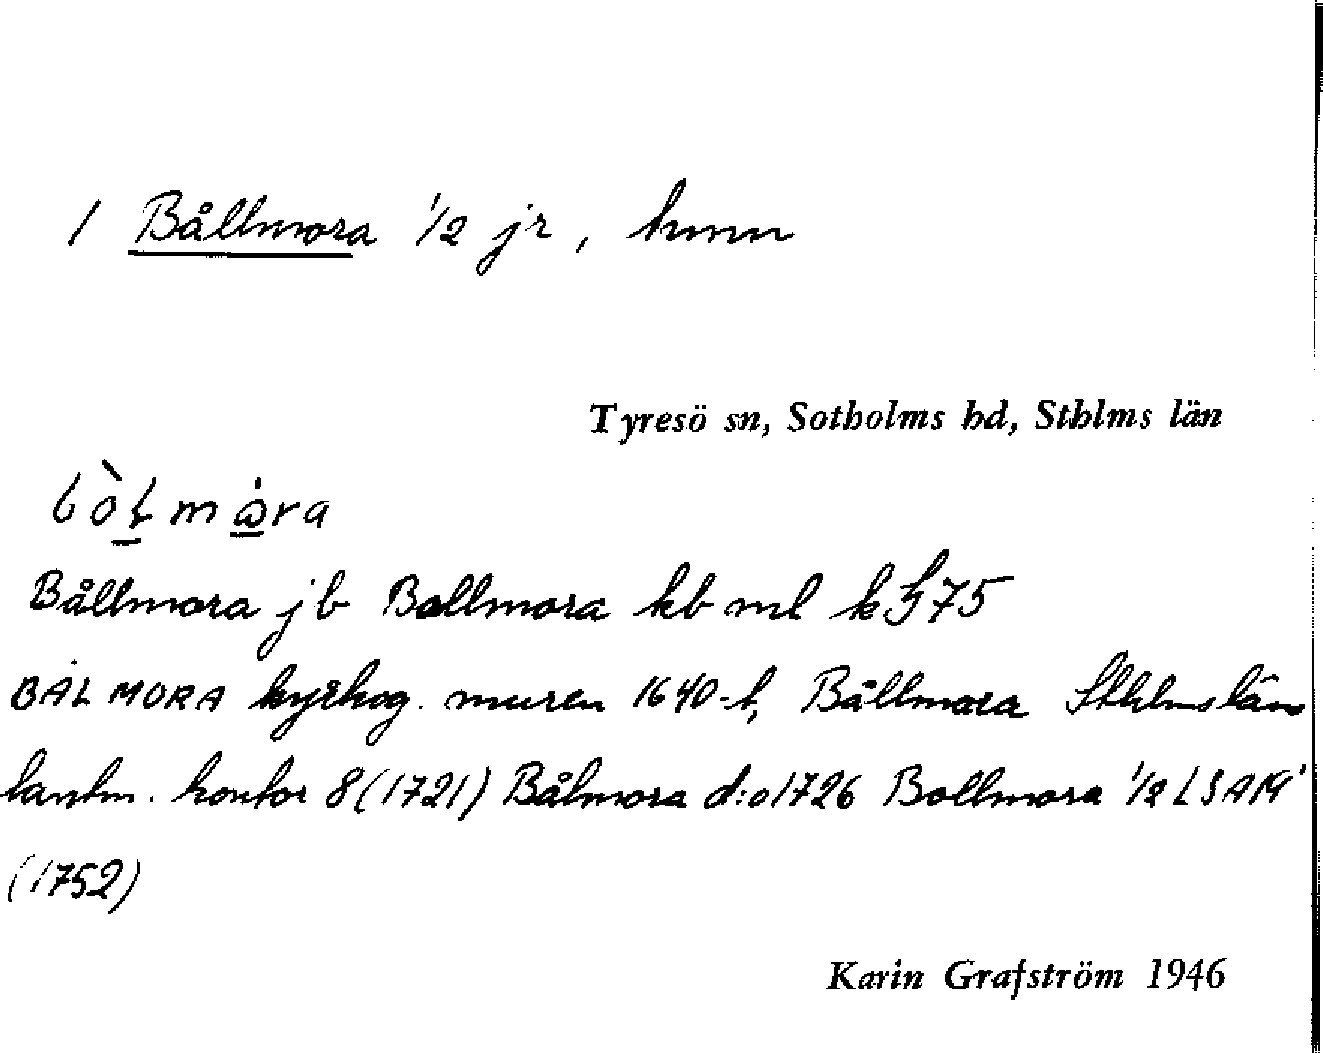 1 Bållmora 1/2 jr, hmn
Tyresö sn, Sotholms hd, Sthlms län
Bållmora jb Bollmora kb ml k 75
BÅLMORA kyrkog. muren 1640-t, Bållmora Sthlms län
lantm. kontor 8 (1721) Bålmora d:o 1726 Bollmora 1/2 LSA
(1752)
Karin Grafström 1946